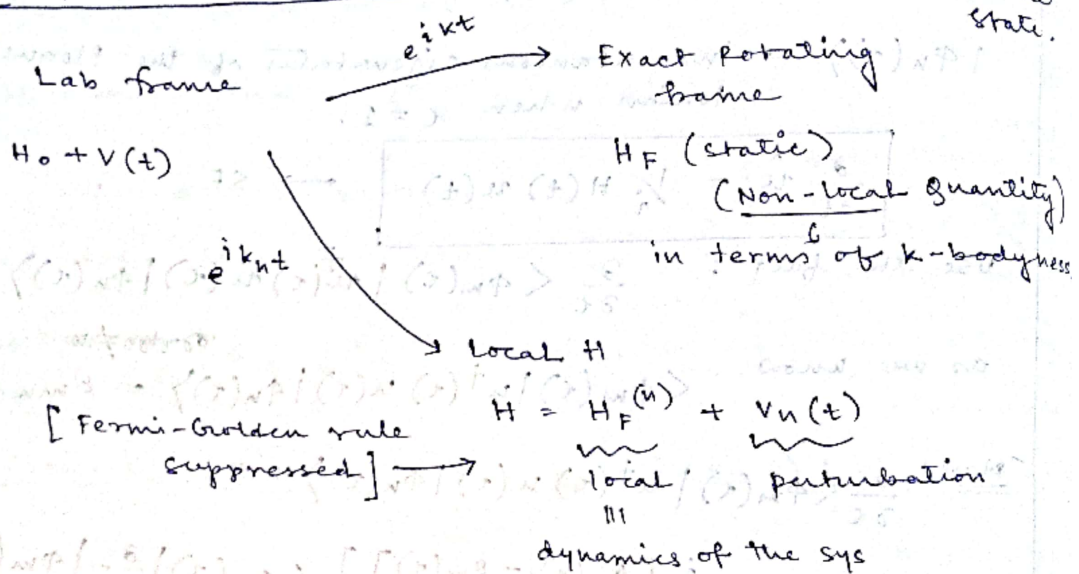 State.
e^{ikt}
Lab frame
Exact Rotating
frame
H_0 + V(t)
H_F (static)
(Non-local Quantity)
in terms of k-bodyness
e^{ik_n t}
Local H
H = H_F^{(n)} + V_n(t)
[Fermi-Golden rule
suppressed] →
local perturbation
|||
dynamics of the sys